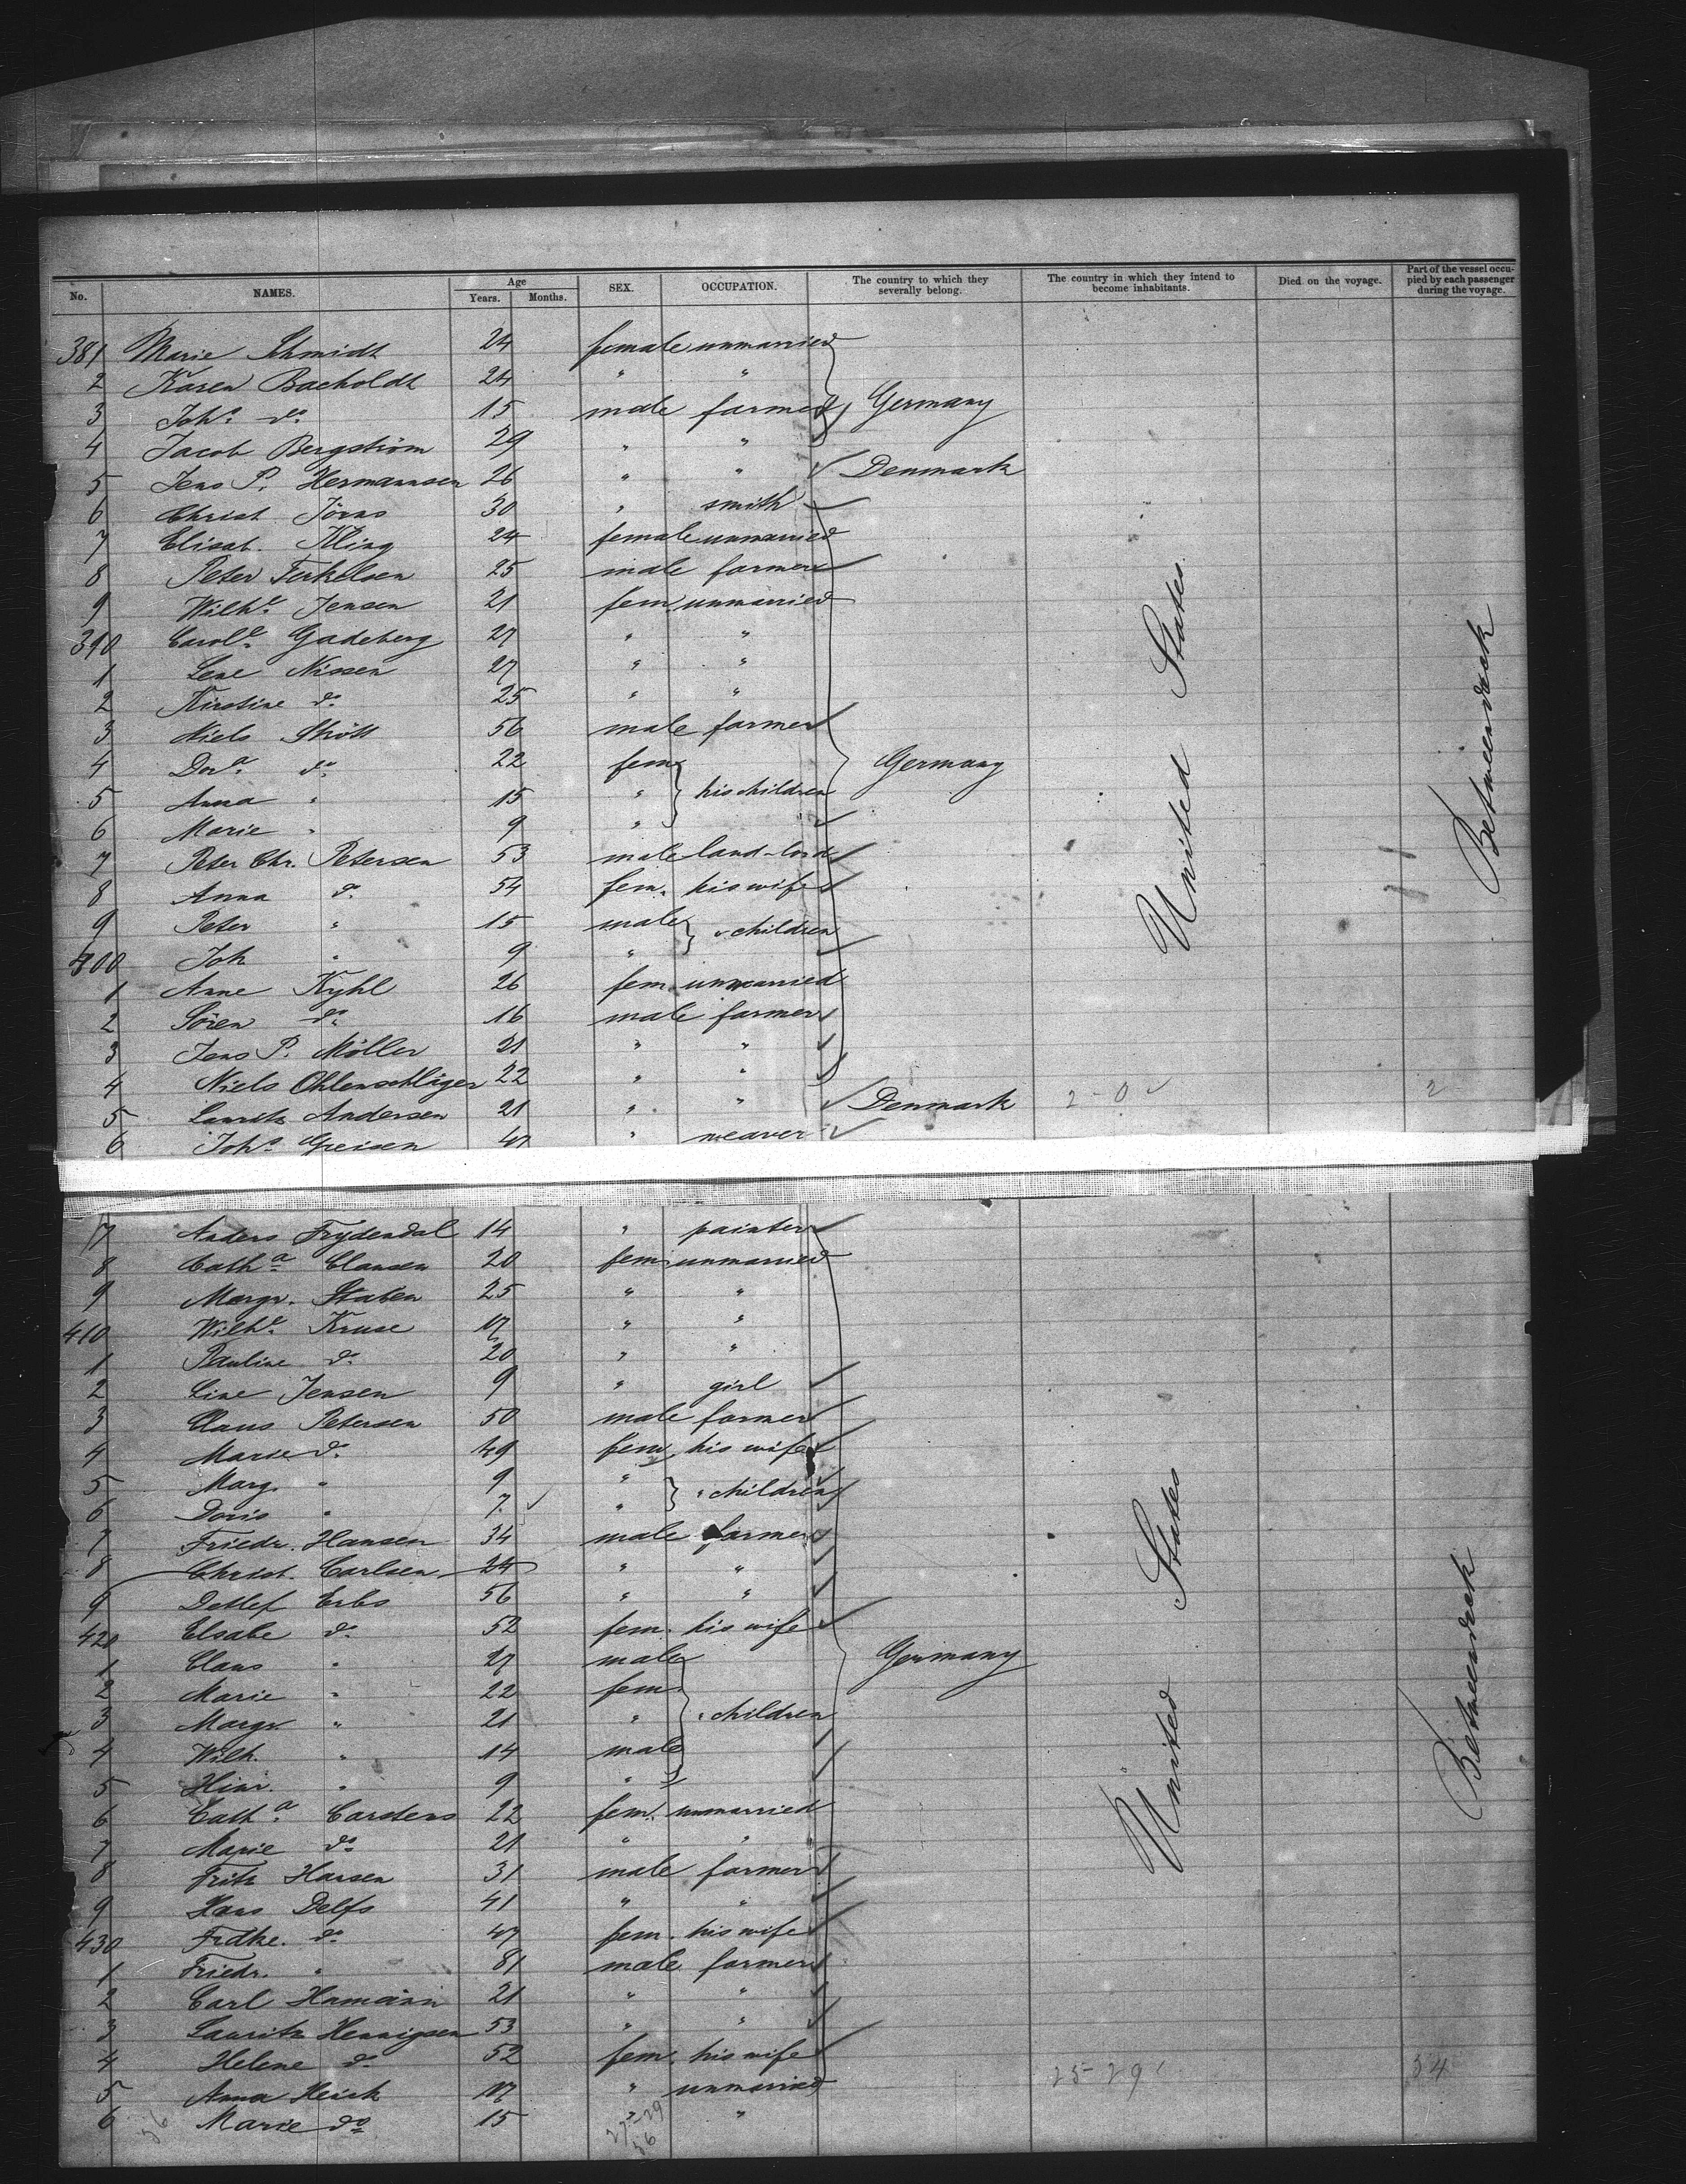 No. NAMES. Age Years. Months. SEX. OCCUPATION. The country to which they severally belong. The country in which they intend to become inhabitants. Died on the voyage. Part of the vessel occupied by each passenger during the voyage.
381 Marie Schmidt 24 female unmarried
2 Karen Bacholdt 24 " "
3 Joh.s do 15 male farmer Germany
4 Jacob Bergström 29 " "
5 Jens P. Hermannsen 26 " " Denmark
6 Christ. Jöras 30 " smith
7 Elisab. Kling 24 female unmarried
8 Peter Terkelsen 25 male farmer
9 Wilh.e Jensen 21 fem. unmarried
390 Carol.e Gadeberg 27 " "
1 Lene Nissen 27 " "
2 Kirstine do 25 " "
3 Niels Skött 56 male farmer
4 Dor.a do 22 fem. Germany
5 Anna " 15 " his children
6 Marie " 9 "
7 Peter Chr. Petersen 53 male land-lord
8 Anna do 54 fem. his wife
9 Peter " 15 male " children
400 Joh. " 9 "
1 Anne Kyhl 26 fem. unmarried
2 Sören do 16 male farmer
3 Jens P. Möller 21 " "
4 Niels Ohlenschläger 22 " "
5 Lauritz Andersen 21 " " Denmark 2-0 2
6 Joh.s Greisen 47 " weaver
United States
Betweendeck
7 Anders Frydendal 14 " painter
8 Cath.a Clausen 20 fem. unmarried
9 Margr. Staben 25 " "
410 Wilh.e Kruse 17 " "
1 Pauline do 20 " "
2 Line Jensen 9 " girl
3 Claus Petersen 50 male farmer
4 Marie do 49 fem. his wife
5 Marg. " 9 " " children
6 Doris " 7 "
7 Friedr. Hansen 34 male farmer
8 Christ. Carlsen 24 " "
9 Detlef Erbs 56 " "
420 Elsabe do 52 fem. his wife
1 Claus " 27 male Germany
2 Marie " 22 fem.
3 Margr. " 21 " " children
4 Wilh. " 14 male
5 Hinr. " 9 "
6 Cath.a Carstens 22 fem. unmarried
7 Marie do 21 " "
8 Fritz Hansen 31 male farmer
9 Hans Delfs 41 " "
430 Fridke. do 47 fem. his wife
1 Friedr. " 81 male farmer
2 Carl Hamann 21 " "
3 Lauritz Hennigsen 53 " "
4 Helene do 52 fem. his wife 25-29 54
5 Anna Heick 17 " unmarried
6 Marie do 15 " "
United States
Betweendeck
56 27-29
56